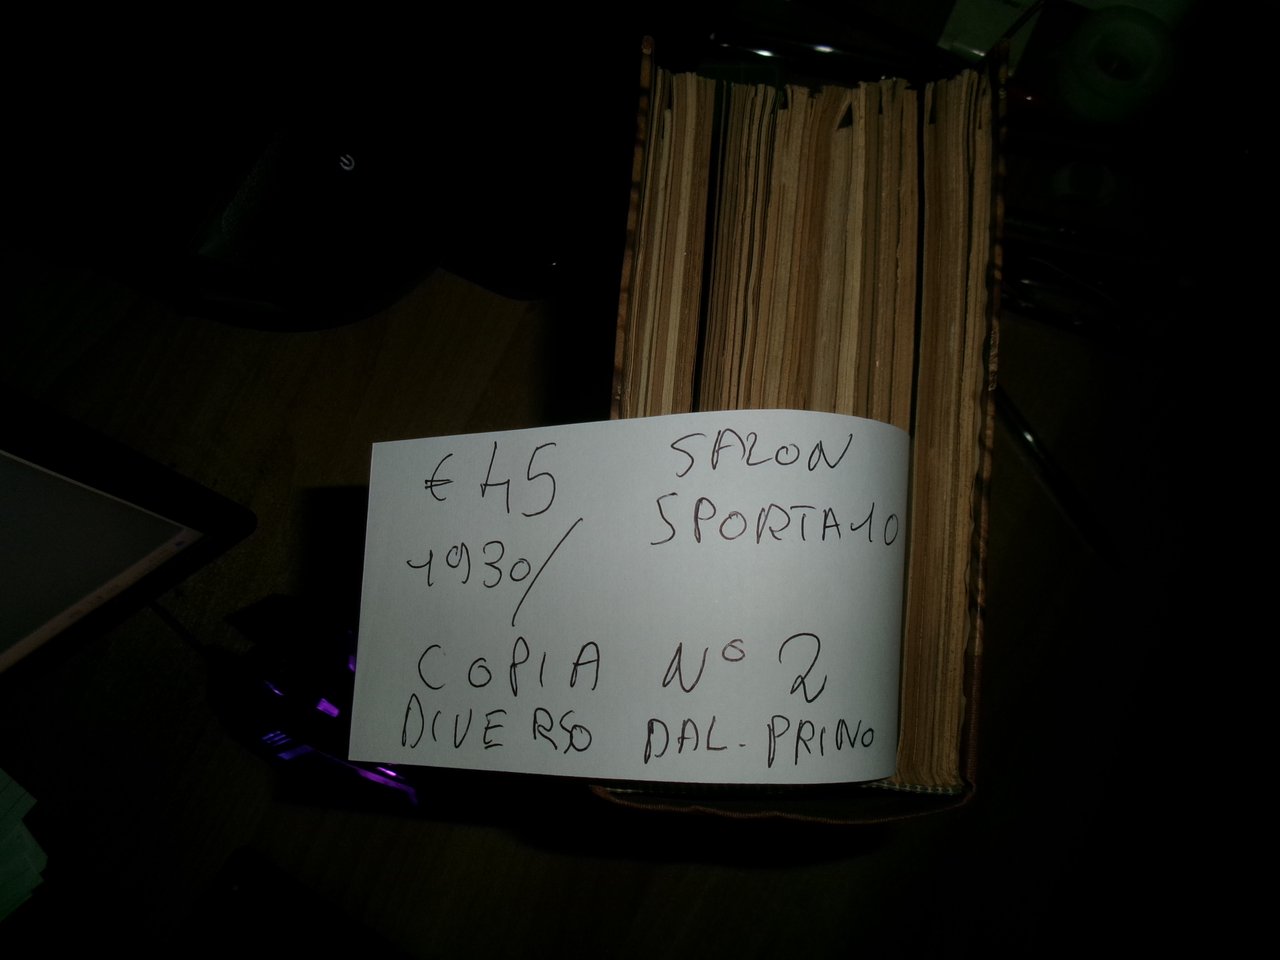 € 45 SALON
SPORTA10
1930/
COPIA Nº 2
DIVERSO DAL. PRIMO